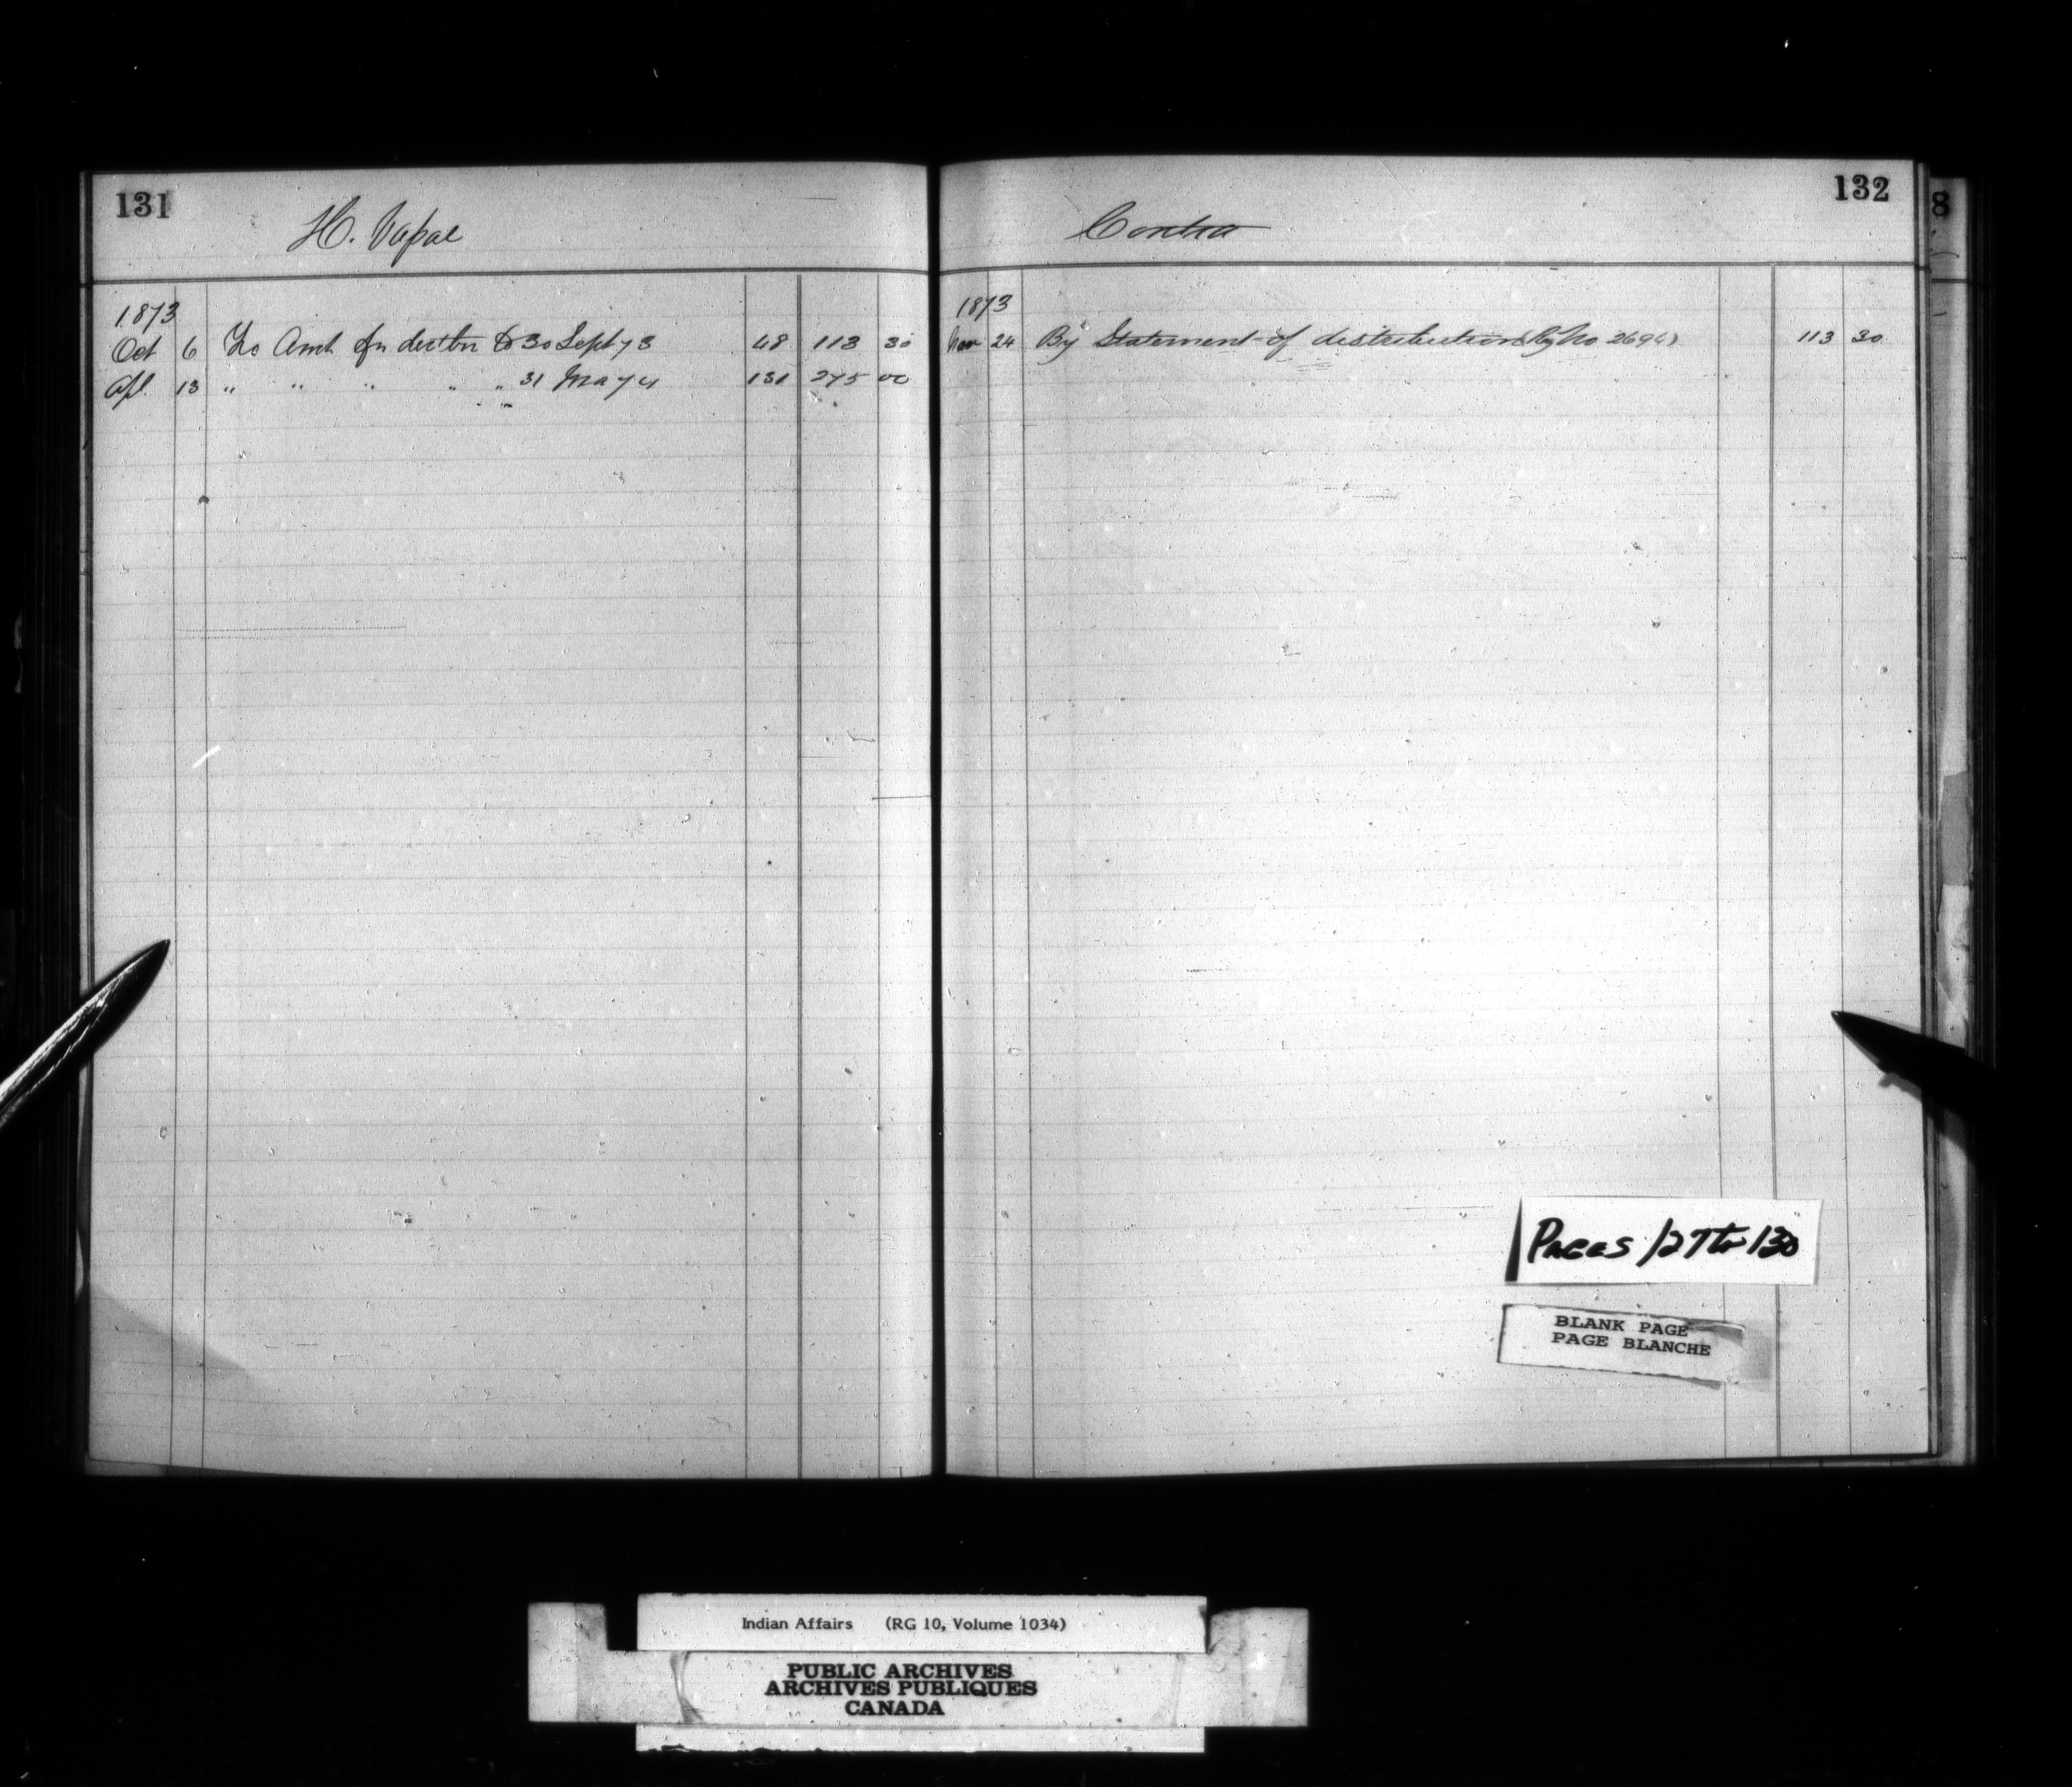 131
H. Vassal
1873
Oct 6 To Amt for distbn to 30 Sept 73 48 113 30
Apl. 13 " " " " " 31 Ma 74 131 275 00
132
8
Contra
1873
Nov 24 By Statement of distribution (Rg No 2694) 113 30
PAGES 127 to 130
BLANK PAGE
PAGE BLANCHE
Indian Affairs (RG 10, Volume 1034)
PUBLIC ARCHIVES
ARCHIVES PUBLIQUES
CANADA